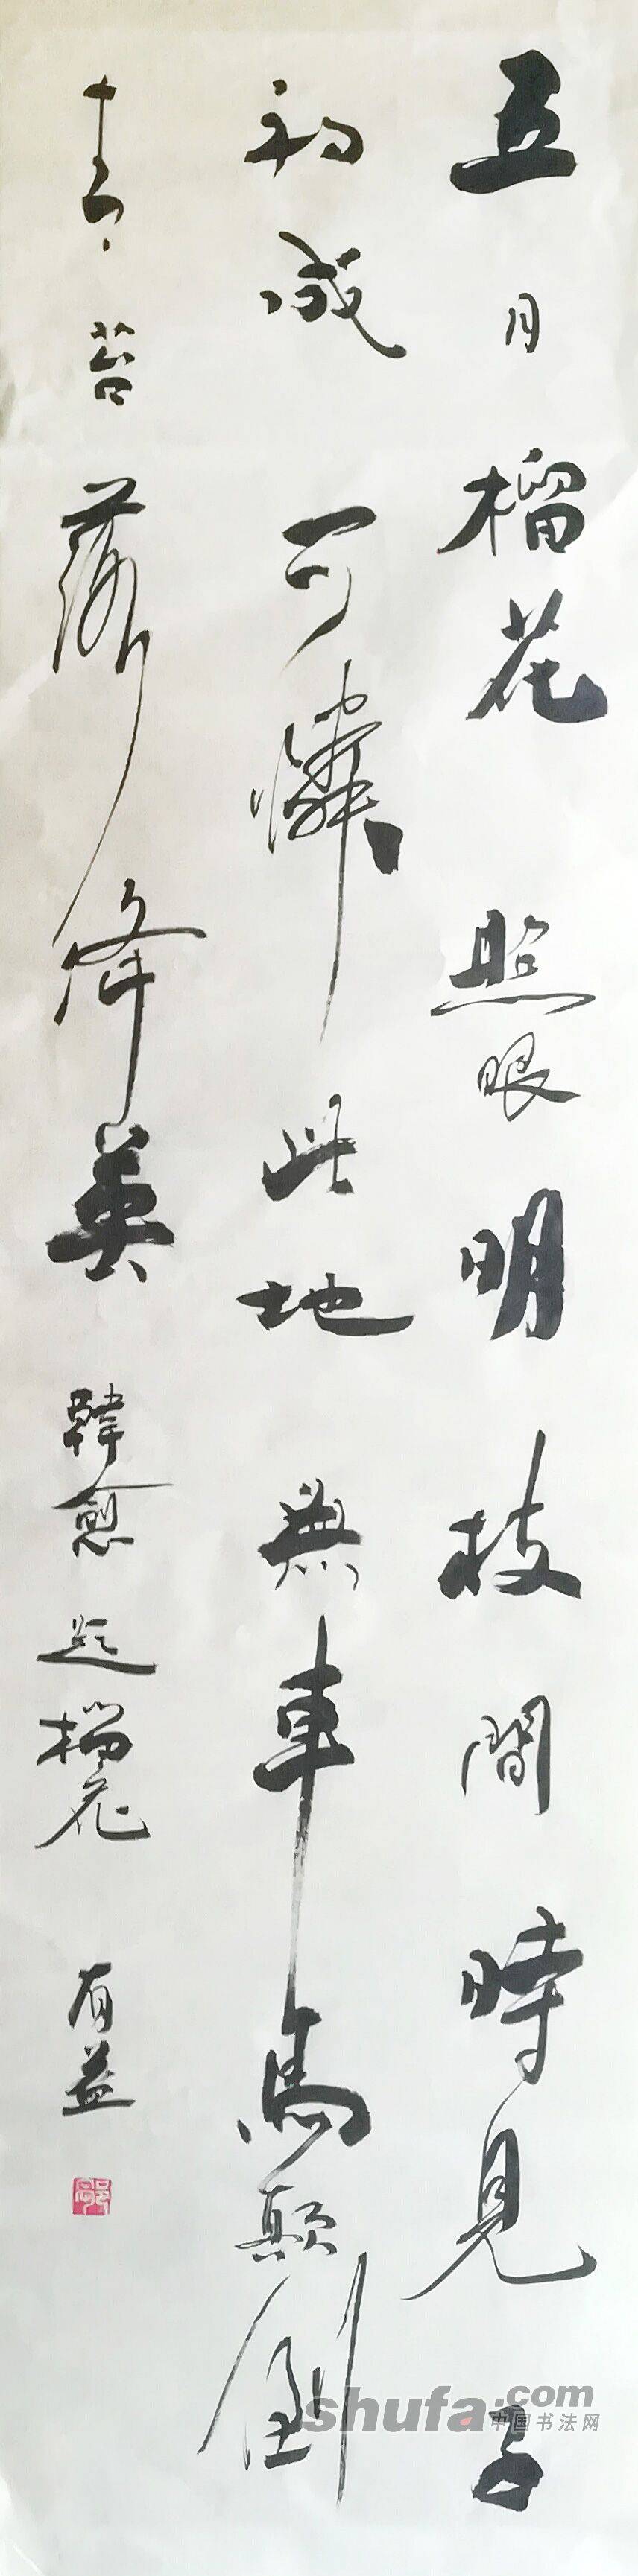 五月榴花照眼明枝間時見子
初成可憐此地無車馬顛倒
青苔落絳英韓愈題榴花有益
shufa.com
中国书法网